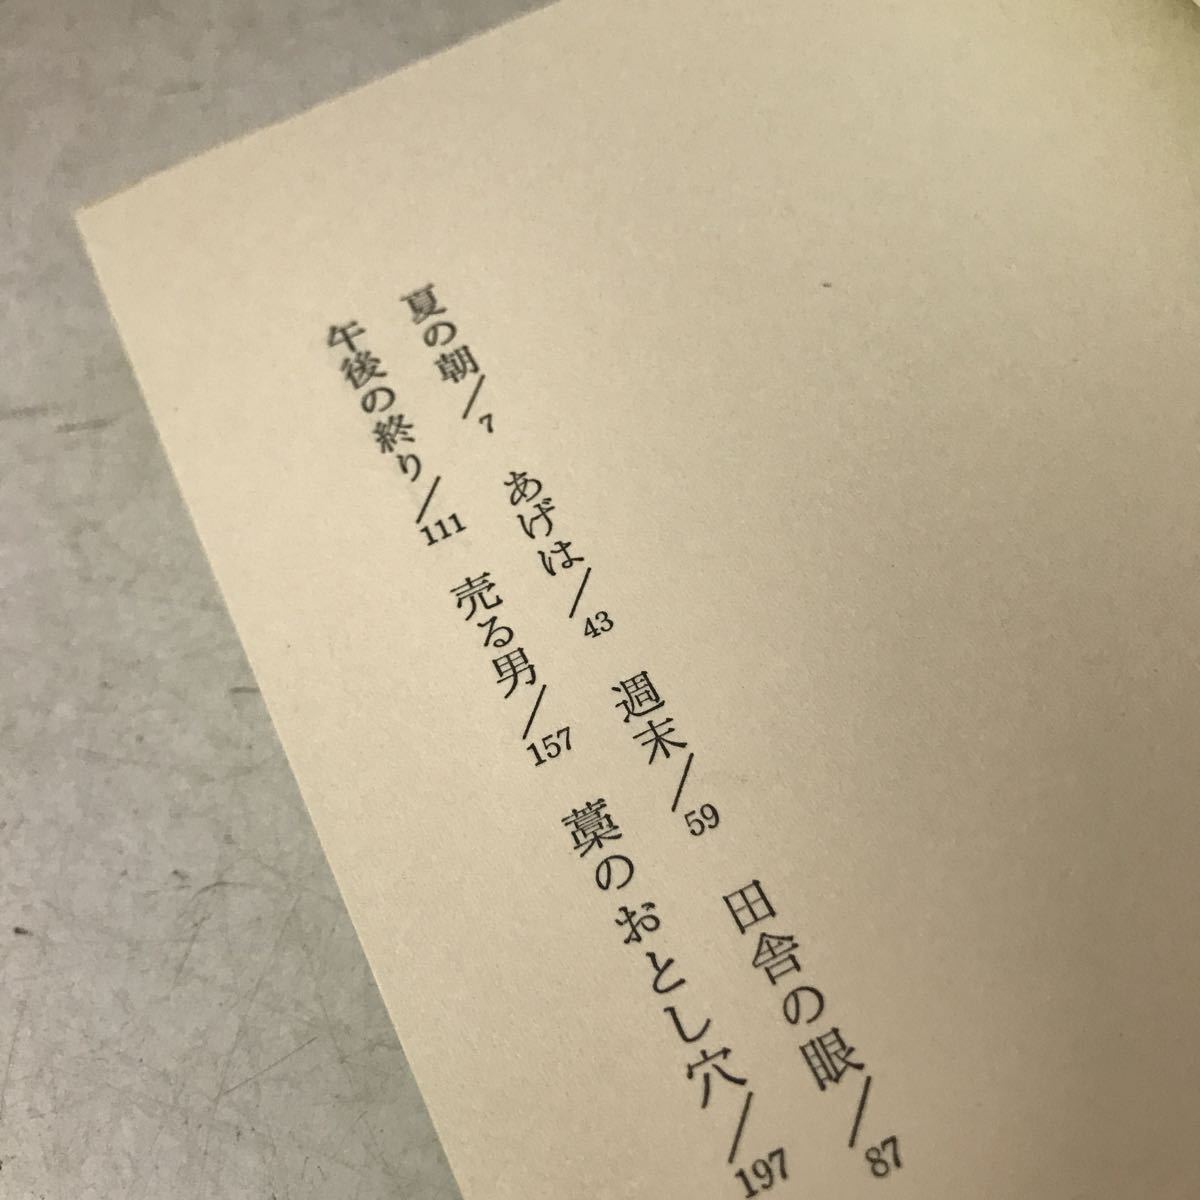 夏の朝/7 あげは/43 週末/59 田舎の眼/87
午後の終り/111 売る男/157 藁のおとし穴/197